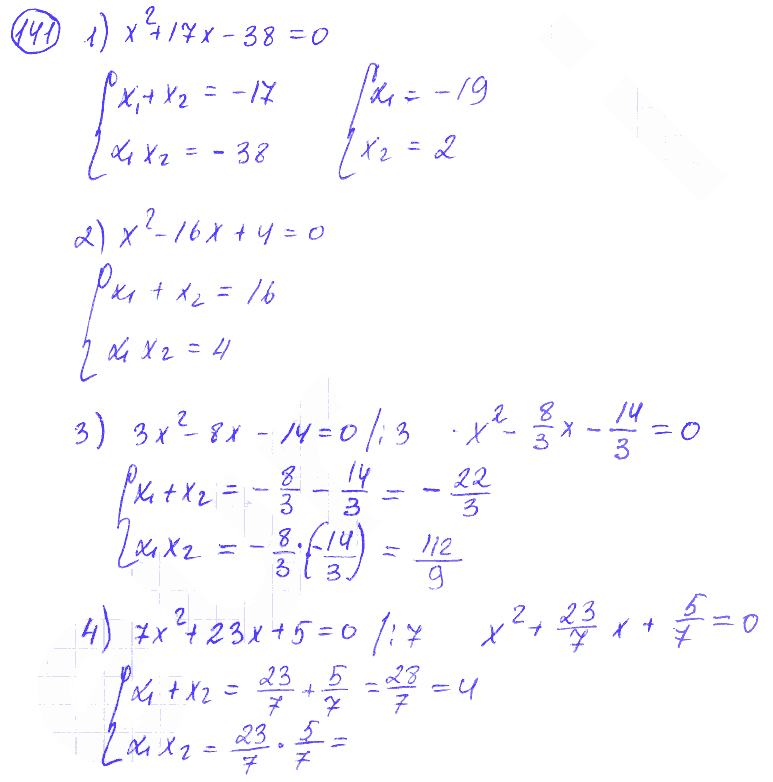 141 1) x²+17x-38=0
{x₁+x₂ = -17 {x₁ = -19
x₁x₂ = -38 x₂ = 2
2) x²-16x+4=0
{x₁ + x₂ = 16
x₁x₂ = 4
3) 3x²-8x-14=0 /:3 · x²- 8/3 x - 14/3 = 0
{x₁+x₂ = - 8/3 - 14/3 = - 22/3
x₁x₂ = - 8/3 · (-14/3) = 112/9
4) 7x²+23x+5=0 /:7 x²+ 23/7 x + 5/7 = 0
{x₁+x₂ = 23/7 + 5/7 = 28/7 = 4
x₁x₂ = 23/7 · 5/7 =